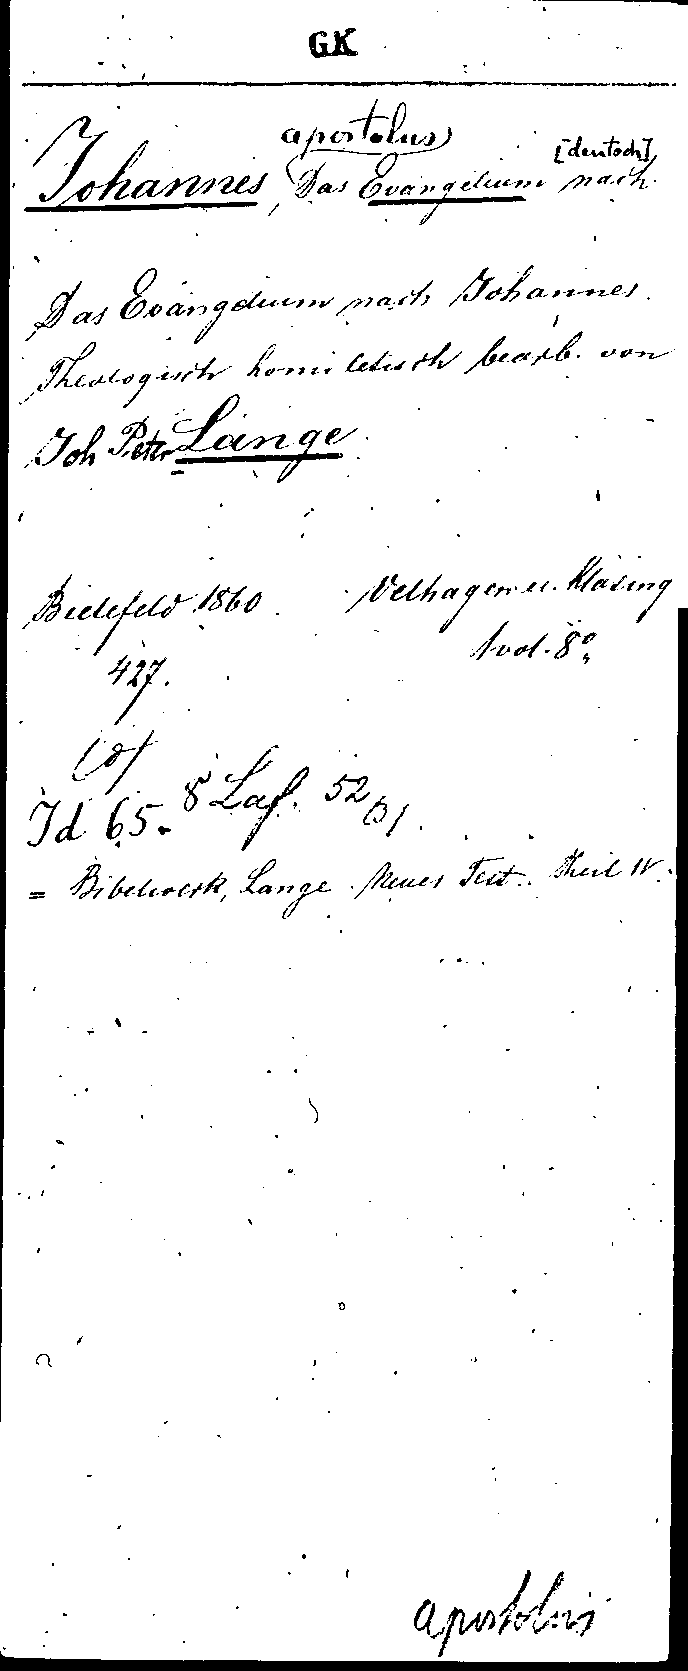 GK
apostolus
[deutsch]
Johannes, Das Evangelium nach
Das Evangelium nach Johannes.
Theologisch homiletisch bearb. von
Joh Peter Lange.
Bielefeld 1860. Velhagen u. Klasing
427. 1 vol. 8°
Id 65. 8 Laf. 52
= Bibelwerk, Lange. Neues Test. Theil IV.
apostolus